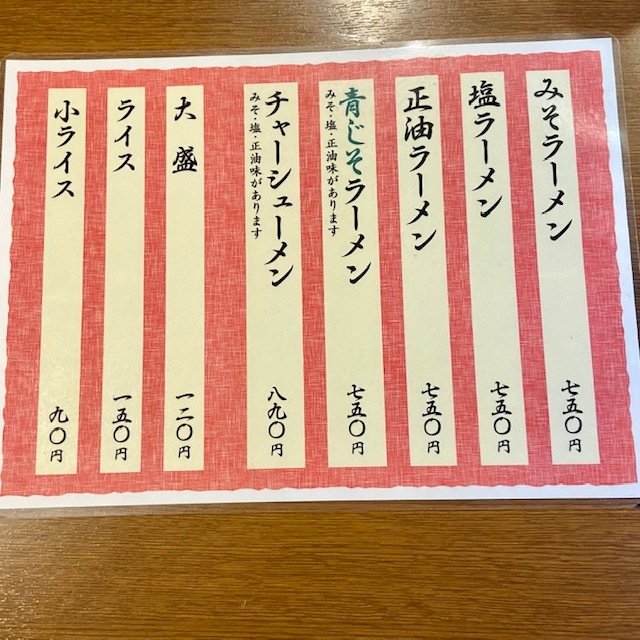 みそラーメン
七五〇円
塩ラーメン
七五〇円
正油ラーメン
七五〇円
青じそラーメン
みそ・塩・正油味があります
七五〇円
チャーシューメン
みそ・塩・正油味があります
八九〇円
大盛
一二〇円
ライス
一五〇円
小ライス
九〇円